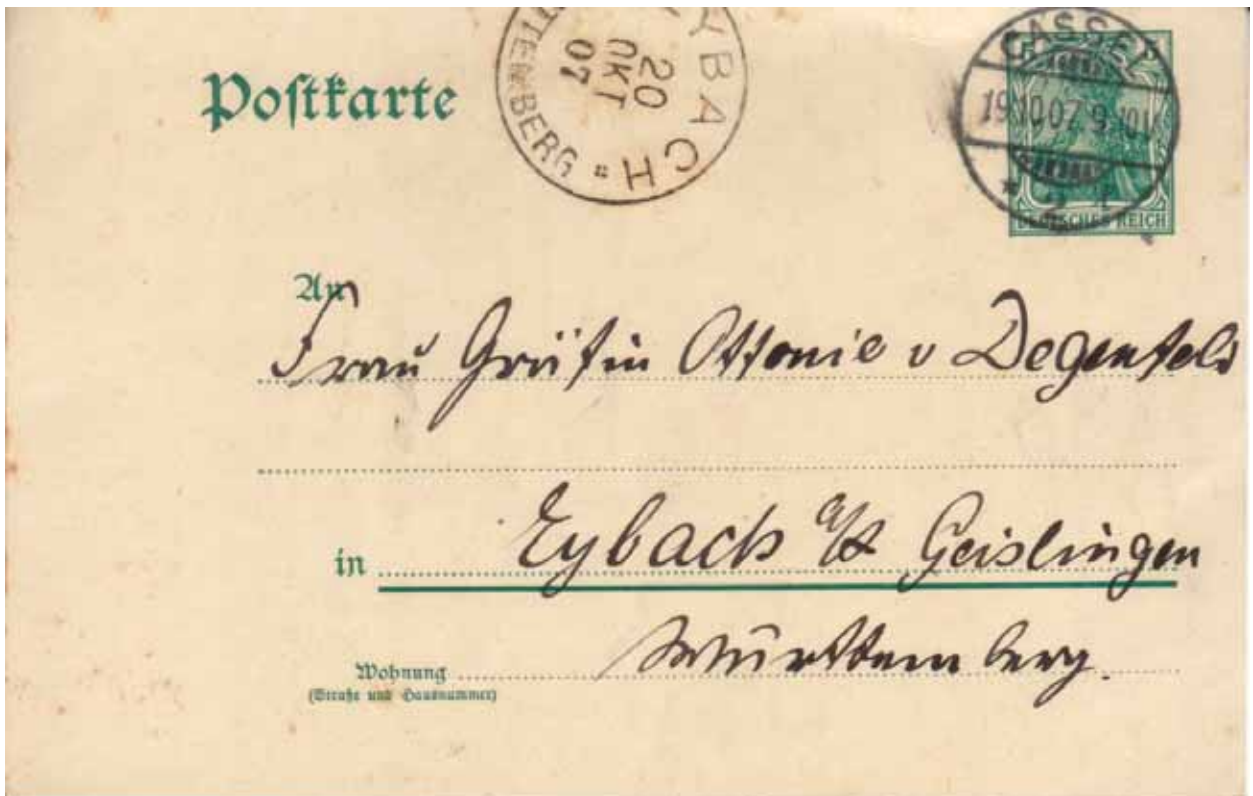 Postkarte
EYBACH
20
OKT
07
TTEMBERG
CASSEL
19.10.07.9-10V.
DEUTSCHES REICH
An
Frau Gräfin Ottonie v Degenfeld
in Eybach a/ Geislingen
Württemberg.
Wohnung
(Straße und Hausnummer)